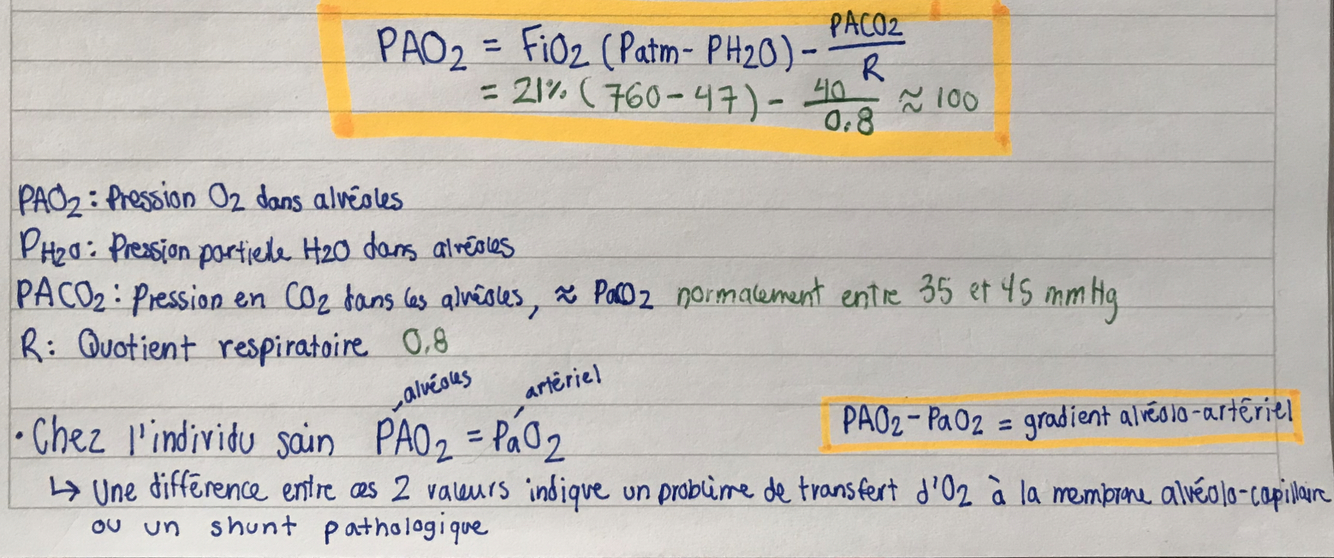 PAO2 = FiO2 (Patm - PH2O) - PACO2/R
= 21% (760 - 47) - 40/0.8 ≈ 100
PAO2 : Pression O2 dans alvéoles
PH2O : Pression partielle H2O dans alvéoles
PACO2 : Pression en CO2 dans les alvéoles, ≈ PaCO2 normalement entre 35 et 45 mmHg
R : Quotient respiratoire 0.8
alvéoles artériel
• Chez l'individu sain PAO2 = PaO2
PAO2 - PaO2 = gradient alvéolo-artériel
↳ Une différence entre ces 2 valeurs indique un problème de transfert d'O2 à la membrane alvéolo-capillaire
ou un shunt pathologique